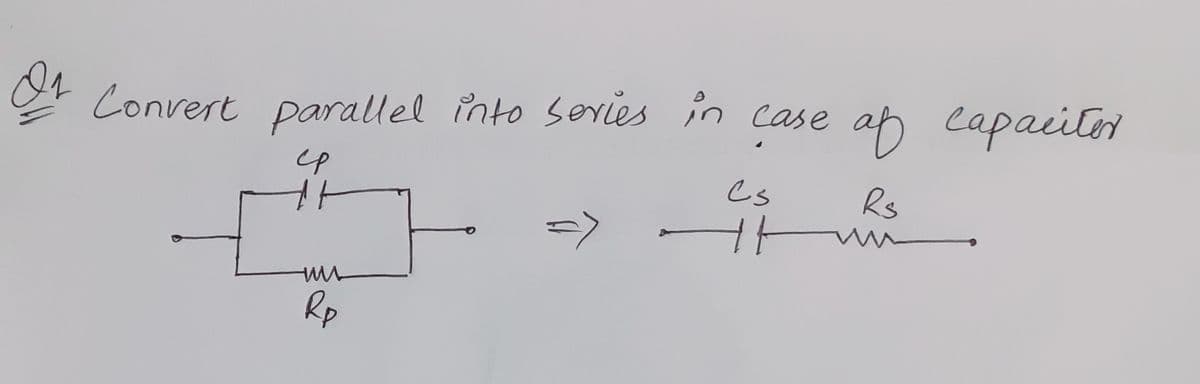 Q1 Convert parallel into series in case of capacitor
Cp
Cs Rs
=>
Rp